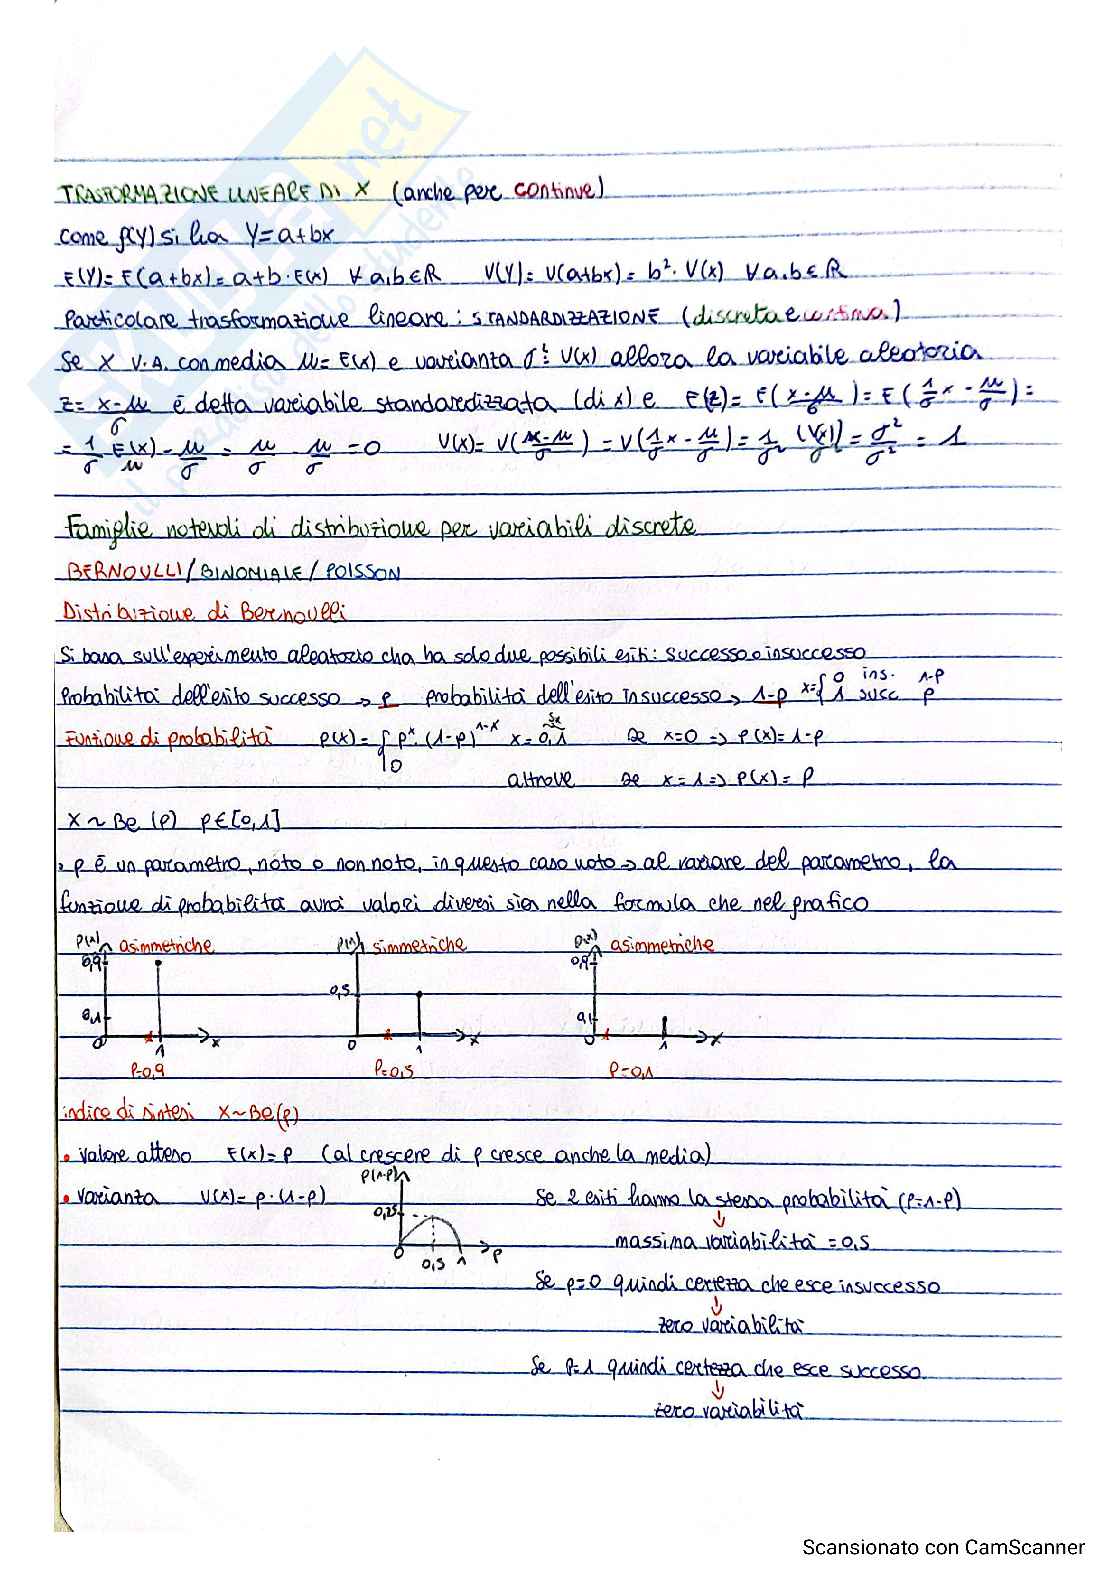 SKUOLA.net
il paradiso dello studente
TRASFORMAZIONE LINEARE DI X (anche per continue)
come f(Y) si ha Y=a+bx
E(Y)= E(a+bx)= a+b·E(x) ∀a,b∈R V(Y)= V(a+bx)= b²·V(x) ∀a,b∈R
Particolare trasformazione lineare: STANDARDIZZAZIONE (discreta e continua)
Se X V.A. con media μ= E(x) e varianza σ²= V(x) allora la variabile aleatoria
Z= x-μ/σ è detta variabile standardizzata (di x) e E(z)= E(x-μ/σ)= E(1/σ x - μ/σ)=
= 1/σ E(x) - μ/σ = μ/σ μ/σ =0 V(x)= V(x-μ/σ) = V(1/σ x - μ/σ)= 1/σ² (V(x)) = σ²/σ² = 1
μ
Famiglie notevoli di distribuzione per variabili discrete
BERNOULLI/BINOMIALE/POISSON
Distribuzione di Bernoulli
Si basa sull'esperimento aleatorio cha ha solo due possibili esiti: successo o insuccesso
Probabilità dell'esito successo → p probabilità dell'esito insuccesso → 1-p x={ 0 ins. 1-p
1 succ p
Funzione di probabilità p(x)= { p^x·(1-p)^1-x x=0,1 Sx se x=0 => p(x)=1-p
0 altrove se x=1 => p(x)= p
X ~ Be (p) p∈[0,1]
→ p è un parametro, noto o non noto, in questo caso noto → al variare del parametro, la
funzione di probabilità avrà valori diversi sia nella formula che nel grafico
p(x) asimmetriche p(x) simmetriche p(x) asimmetriche
0,9 0,9
0,5
0,1 0,1
0 1 x 0 1 x 0 1 x
P=0,9 P=0,5 P=0,1
indice di sintesi X~Be(p)
• valore atteso E(x)= p (al crescere di p cresce anche la media)
• varianza V(x)= p·(1-p) p(1-p) Se 2 esiti hanno la stessa probabilità (p=1-p)
0,25
massima variabilità = 0,5
0 0,5 1 p
Se p=0 quindi certezza che esce insuccesso
zero variabilità
Se P=1 quindi certezza che esce successo
zero variabilità
Scansionato con CamScanner